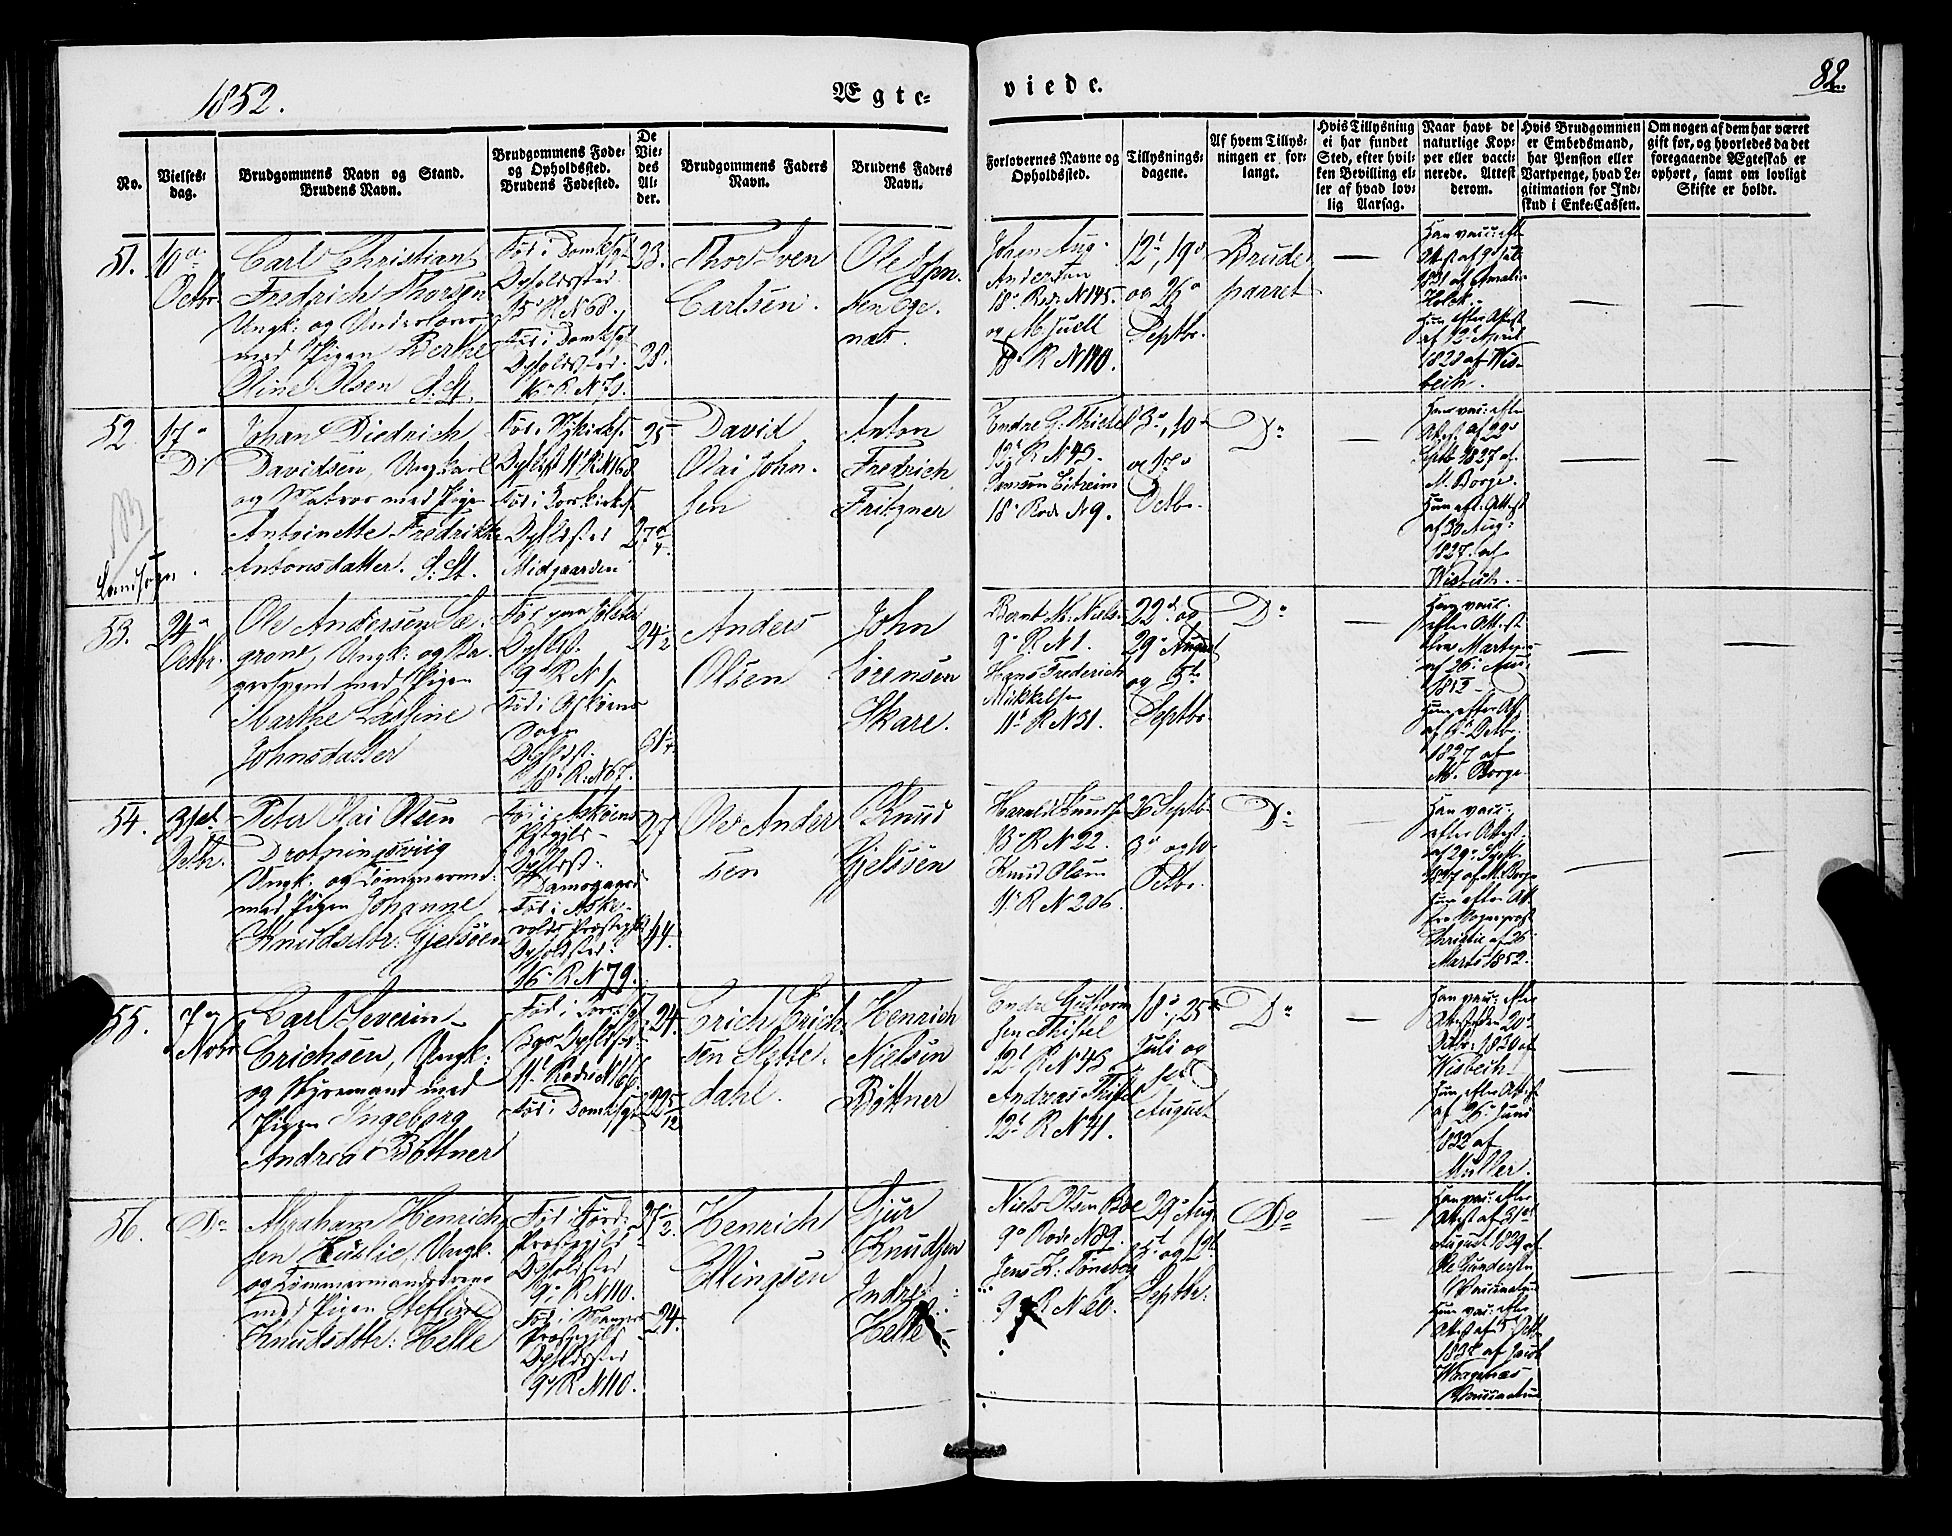 1852.
Ægte-
viede.
82
No.
Vielses-
dag.
Brudgommens Navn og Stand.
Brudens Navn.
Brudgommens Føde-
og Opholdssted.
Brudens Fødested.
De
Vie-
des
Al-
der.
Brudgommens Faders
Navn.
Brudens Faders
Navn.
Forlovernes Navne og
Opholdssted.
Tillysnings-
dagene.
Af hvem Tillys-
ningen er for-
langt.
Hvis Tillysning
ei har fundet
Sted, efter hvil-
ken Bevilling el-
ler af hvad lov-
lig Aarsag.
Naar havt de
naturlige Kop-
per eller vacci-
nerede. Attest
derom.
Hvis Brudgommen
er Embedsmand,
har Pension eller
Vartpenge, hvad Le-
gitimation for Ind-
skud i Enke-Cassen.
Om nogen af dem har været
gift før, og hvorledes da det
foregaaende Ægteskab er
ophørt, samt om lovligt
Skifte er holdt.
51.
10
Octbr
Carl Christian
Fredrich Thorsen
Ungk: og Underlærer
med Pigen Berthe
Oline Olsen
Fød i Domksgt
Opholdssted
15 R N 68.
Fød i Domksgt
Opholdssted
16 R N 75.
23.
28.
Thor Iven
Carlsen.
Ole John-
sen Ege-
næs.
Johan Aug.
Andersen
18 Rode N 145.
og M. Juell
18 R N 140.
12, 19
og 26
Septbr.
Brude-
parret
Han vacc: efter
Attest af 9 Juli
1831 af Amalie
Holck.
Hun efter Attest
af 12 April
1823 af Wis-
beich.
52.
17
D
Landsogn.
Johan Diedrich
Davidsen, Ungkarl
og Matros med Pigen
Antoinette Fredrikke
Antonsdatter.
Fød i Nykirks.
Opholdst 11 R N 168
Fød i Korskirks
Opholdssted
Midgaarden
25
27
David
Olai John-
sen
Anton
Fredrich
Fritzner
Endre G. Thistel
12 R N 45.
Samson Eitreim
18 Rode N 9.
3, 10
og 17
Octbr.
Do
Han vacc: efter
Attest af 22
Septb 1827 af
M. Borge.
Hun eft: Attest
af 30 Aug:
1827 af
Wisbech.
53.
24
Octbr.
Ole Andersen Se-
grove, Ungk: og Ba-
gersvend med Pigen
Marthe Lassine
Johnsdatter
Fød paa Jølster
Opholdst.
9 R N 1
Fød i Askøens
Sogn
Opholdst.
18 R. N 67.
24½
31
Anders
Olsen
John
Sørensen
Skare.
Bernt M. Niels-
9 R. N 1.
Hans Frederich
Mikkelsen
11 R N 31.
22 og
29 August
og 5
Septbr.
Do
Han vacc.
efter Attest
1827 af
M. Borge.
54.
31
Octbr.
Peter Olai Olsen
Drotningsviig
Ungk. og Tømmermd.
med Pigen Johanne
Knudsdtr: Gjelsøen
Fød i Askøens
Prstgjld
Opholdst.
Damsgaard
Fød i Aske-
volds Præstegjld
Opholdssted
16 R N 79.
27
44.
Ole Ander-
sen
Knud
Gjelsøen
Harald Knudsen
13 R N 22.
Knud Olsen
11 R N 206.
26 Septbr
3 og 10
Octbr.
Do
Han vacc.
efter Attest
af 29 Septbr
1827 af M. Borge
Hun efter Att.
fra Sogneprest
Christie af 25
Marts 1852.
55.
7
Novbr
Carl Severin
Erichsen, Ungk:
og Styrmand med
Pigen Ingeborg
Andrea Bøttner
Fød i Korsksgt
11 Rode N 166.
Fød i Domksgt
24.
22 5/12
Erich Erich-
sen Slette-
dahl.
Henrich
Nielsen
Bøttner
Endre Guttorm-
sen Thistel
12 R N 45
Andreas Thistel
12 R N 41.
18, 25
Juli og
1
August
Do
Han vacc: efter
Attest den 20
Octbr: 1830 af
Wisbech
Hun efter Attest
af 26 Juni
1832 af
Müller.
56.
Do
Abraham Henrich-
sen Huslie, Ungk.
og Tømmermandsdreng
med Pigen Steffine
Knudsdtr: Helle
Fød i Førde
Præstegjeld
Opholdssted
9 R N 110.
Fød i Manger
Præstegjld
Opholdssted
9 R N 110.
27½
24.
Henrich
Ellingsen
Gjur
Knudsen
Indre
Helle
Niels Olsen Boe
9 Rode N 89.
Jens K. Tønsberg
9 R N 60.
29 Aug.
5 og 12
Septbr:
Do
Han vac: efter
Attest af 31
August 1829 af
Ole Gundersen
Vaccinateur
Hun vac: efter
Attest af 5 Octb
1835 af Jacob
Wognæs
Vaccinateur